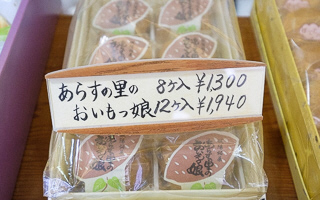 あらすの里の 8ケ入 ¥1,300
おいもっ娘 12ケ入 ¥1,940